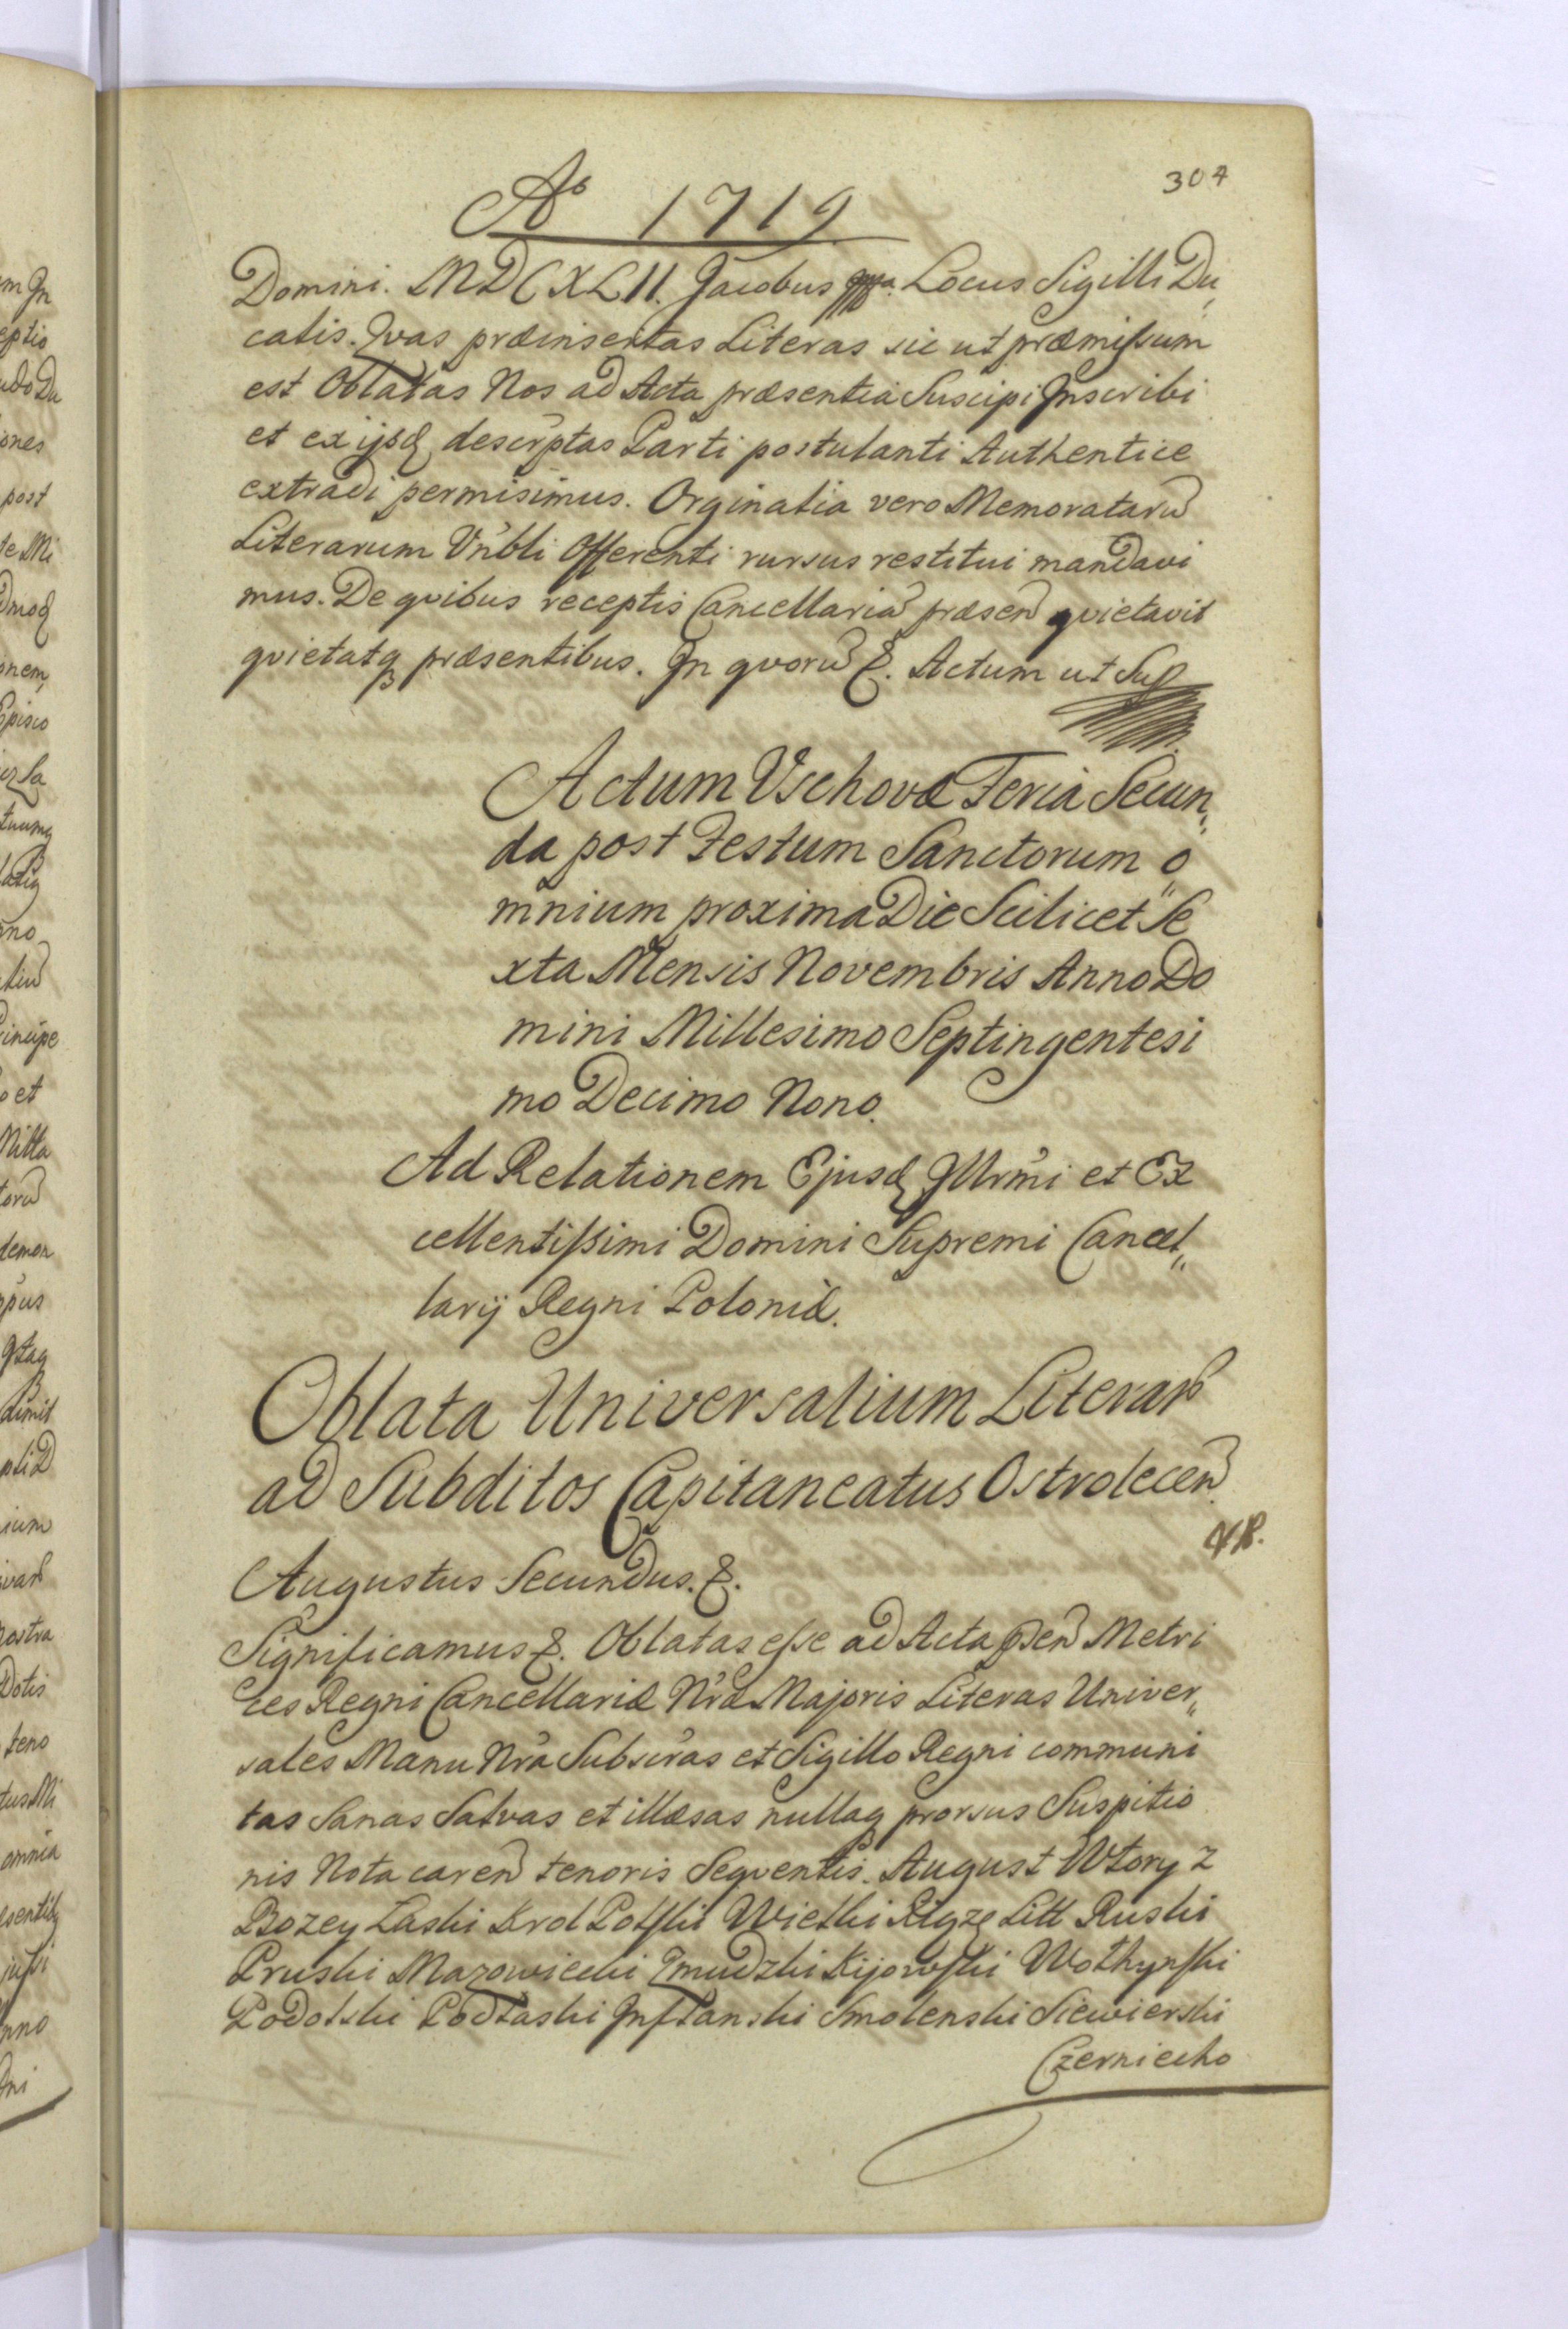 304
Aö 1719
Domini. MDCXLII. Jacobus mppa. Locus Sigilli Du„
calis. Qvas præinsertas Literas sic ut præmissum
est Oblatas Nos ad Acta præsentia Suscipi Inscribi
et ex ijsd descrptas Parti postulanti Authentice
extradi permisimus. Orginalia vero Memoratarũ
Literarum Vnbli Offerenti rursus restitui mandavi
mus. De qvibus receptis Cancellariã præseñ qvietavit
qvietatq præsentibus. In qvorũ &. Actum ut Sup
Actum Vschovæ Feria Secun„
da post Festum Sanctorum O„
mnium proxima Die Scilicet Se
xta Mensis Novembris Anno Do
mini Millesimo Septingentesi
mo Decimo Nono.
Ad Relationem Ejusd Illrmi et Ex
cellentissimi Domini Supremi Cancel„
larij Regni Poloniæ.
Oblata Universalium Literar
ad Subditos Capitaneatus Ostroleceñ
Augustus Secundus. &.
Significamus &. Oblatas esse ad Acta pseñ Metri
ces Regni Cancellariæ Nræ Majoris Literas Univer„
sales Manu Nra Subscras et Sigillo Regni communi
tas Sanas Salvas et illæsas nullaq prorsus Suspitio
nis Nota careñ tenoris Seqventis. August Wtory z
Bozey Łaski Krol Polski Wielki Xiąze Litt Ruski
Pruski Mazowiecki Zmudzki Kijowski Wołhynski
Podolski Podlaski Inflanski Smolenski Siewierski
Czerniecho